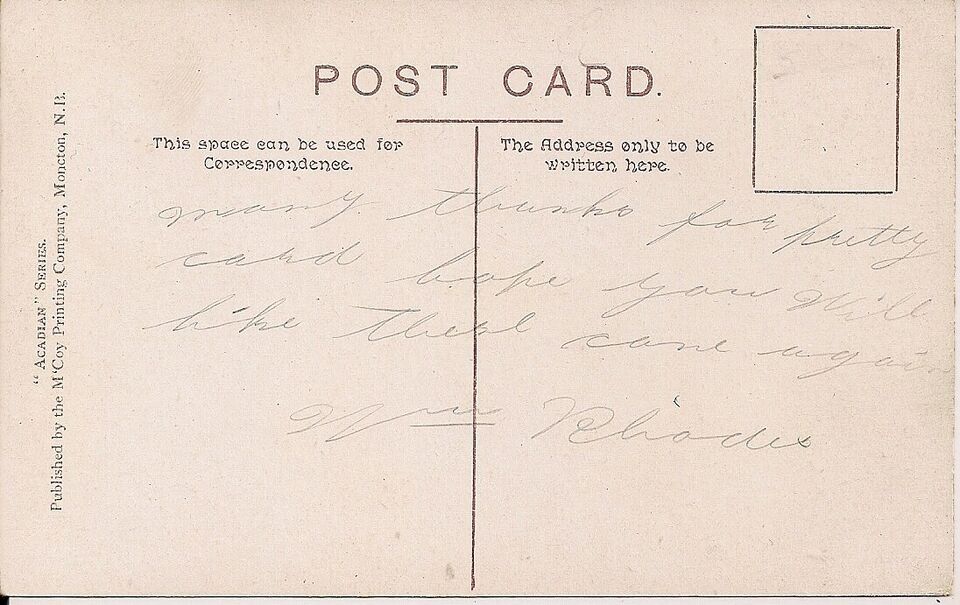 POST CARD.
This space can be used for
Correspondence.
The Address only to be
written here.
"ACADIAN" SERIES.
Published by the McCoy Printing Company, Moncton, N.B.
many thanks for pretty
card hope you Will
like these again
Wm Rhodes